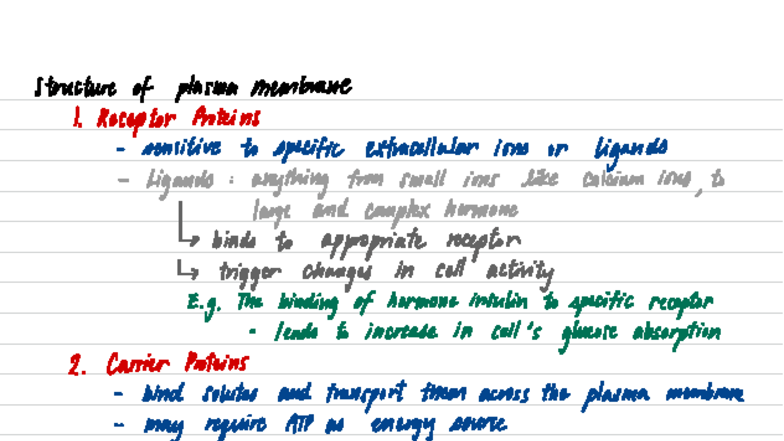 Structure of plasma membrane
1. Receptor Proteins
- sensitive to specific extracellular ions or ligands
- Ligands : anything from small ions like calcium ions, to
large and complex hormone
↳ binds to appropriate receptor
↳ trigger changes in cell activity
E.g. The binding of hormone insulin to specific receptor
- leads to increase in cell's glucose absorption
2. Carrier Proteins
- bind solutes and transport them across the plasma membrane
- may require ATP as energy source